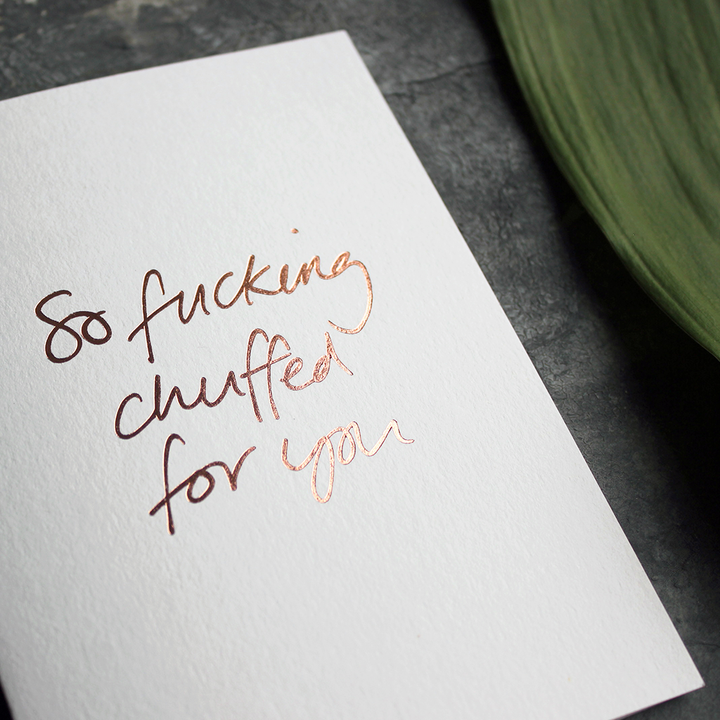 So fucking
chuffed
for you